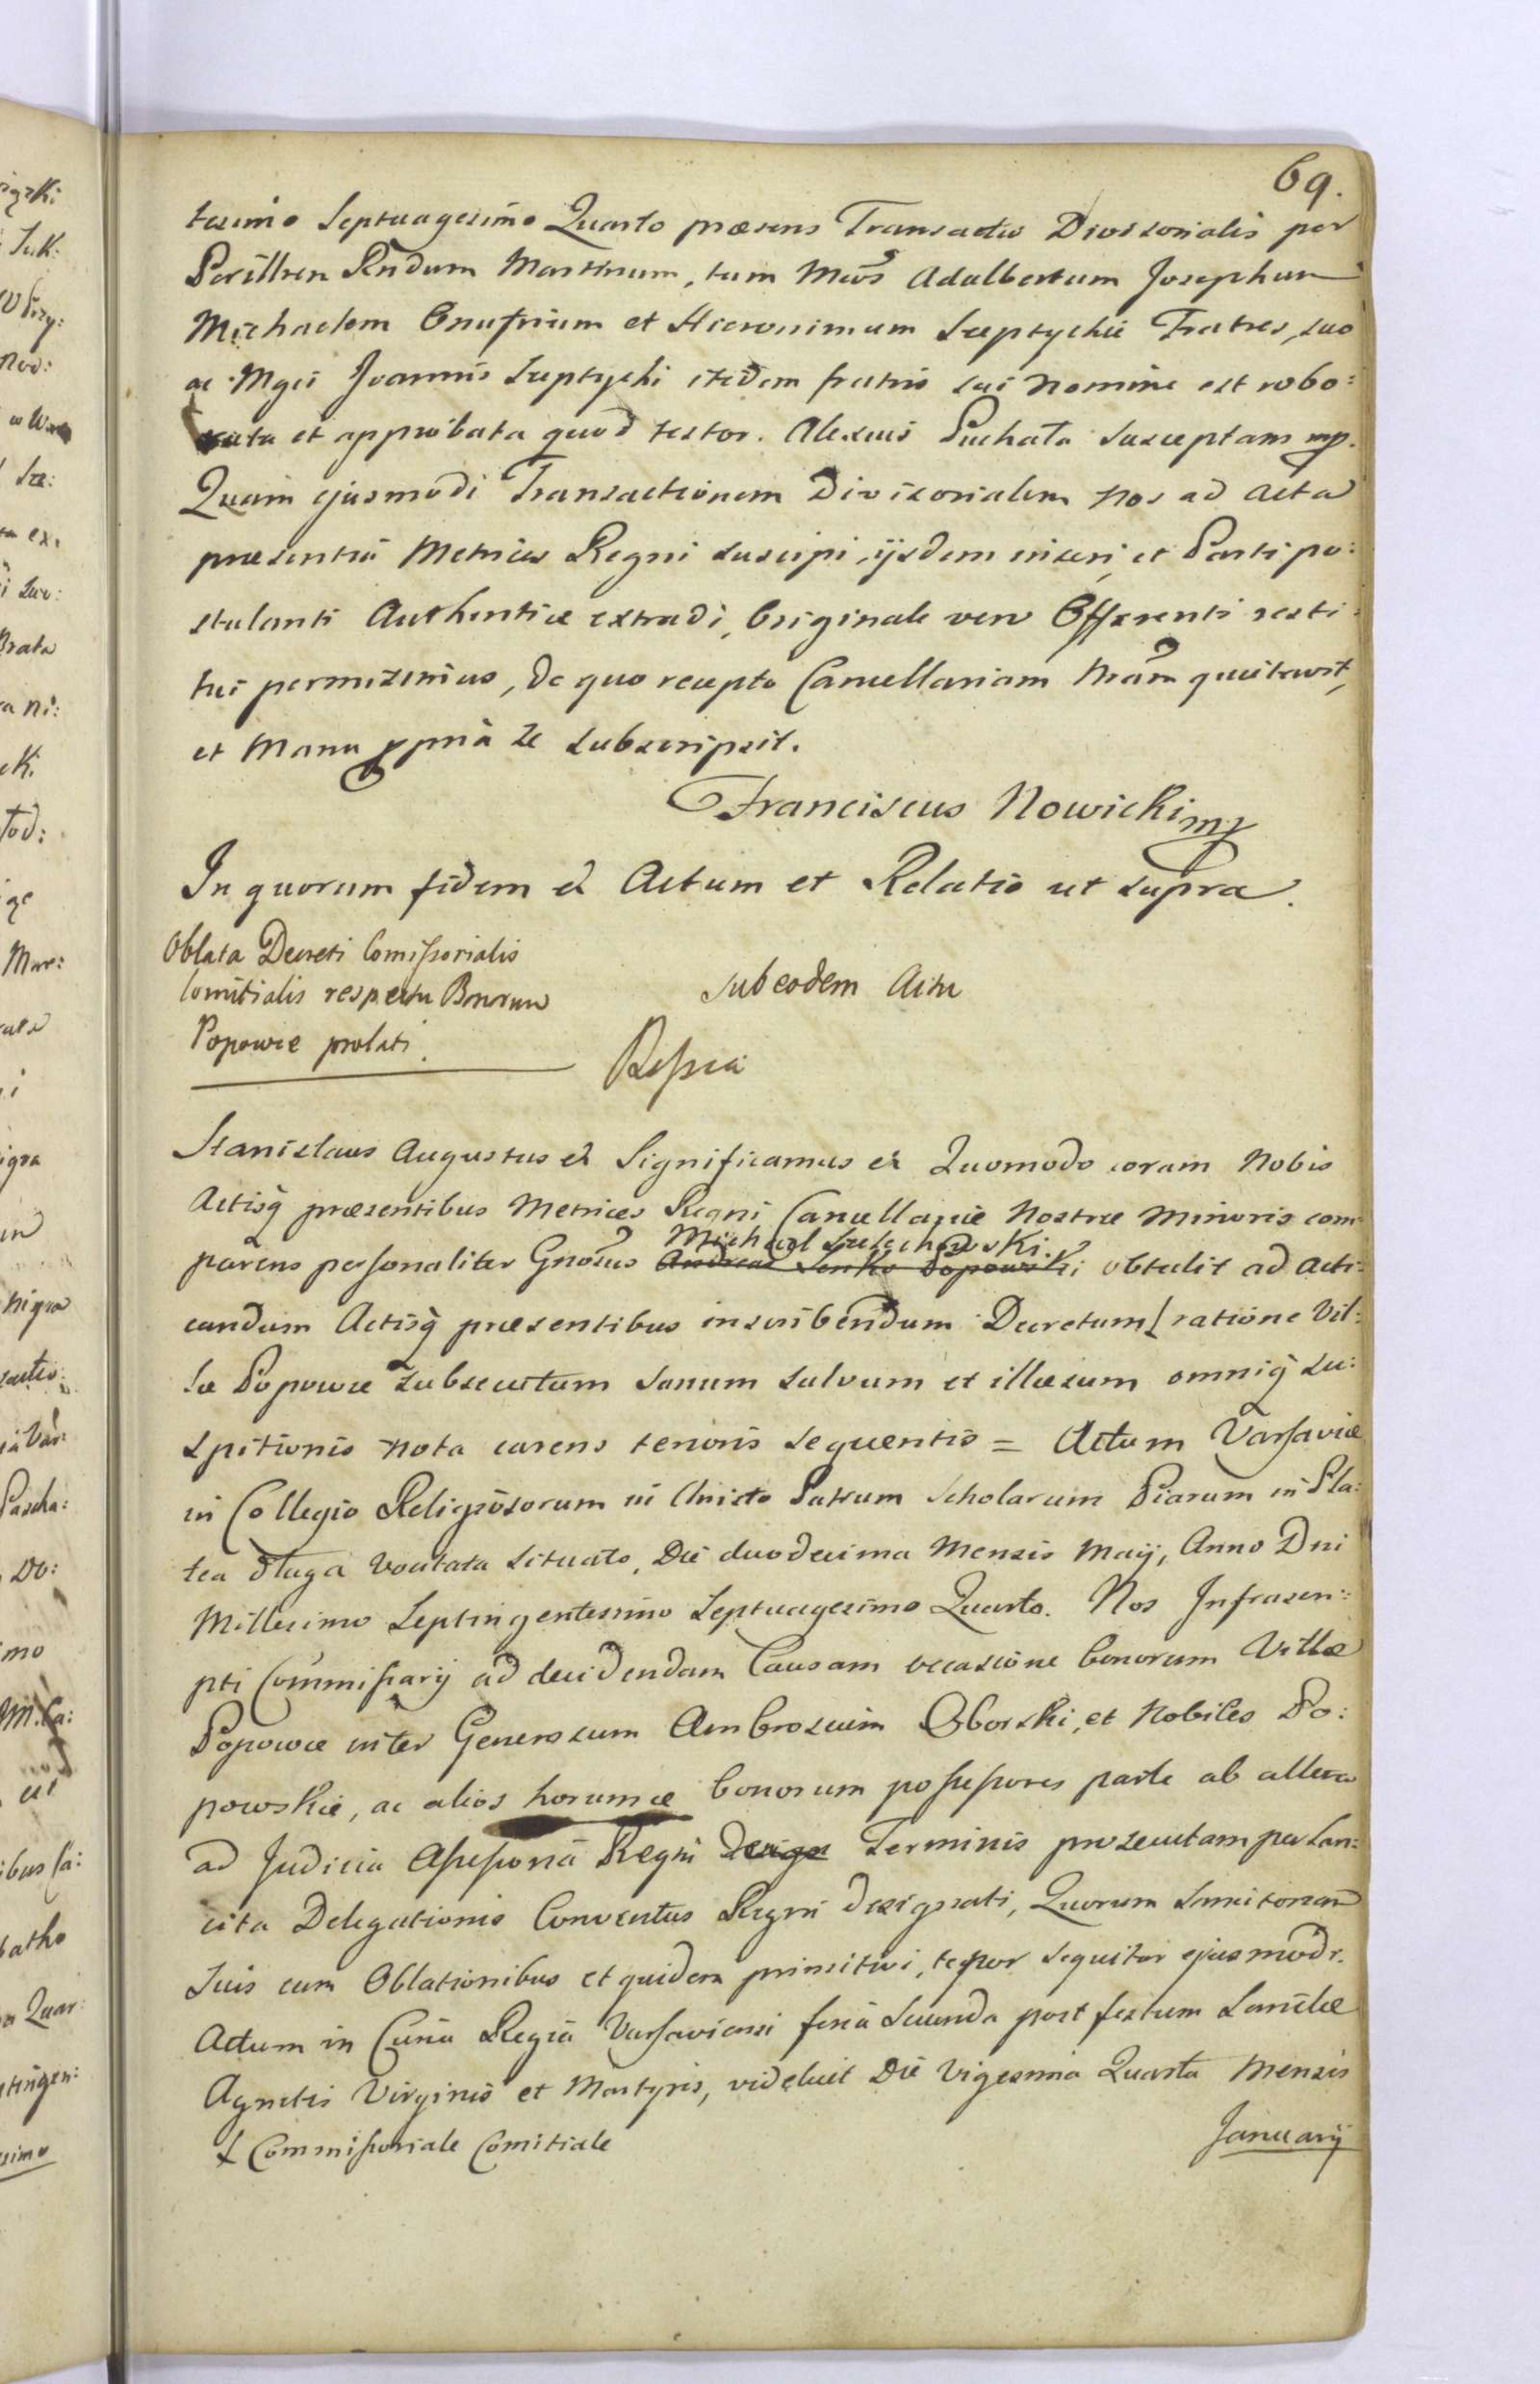 69.
tesimo Septuagesimo Quarto præsens Transactio Divisorialis per
Perillrem Rndum Martinum, tum Mcos Adalbertum Josephum
Michaelem Onufrium et Hieronimum Szeptyckie Fratres, suo
ac Mgci Joannis Szeptycki itidem fratris sui nomine est robo:
rata et approbata quod testor. Alexius Puchała Susceptans mp.
Quam ejusmodi Transactionem Divisorialem nos ad Acta
præsentia Metrices Regni suscipi, ijsdem inseri, et Parti po:
stulanti Authentice extradi, Originale vero Offerenti resti:
tui permisimus, de quo recepto Cancellariam Nram quietavit,
et Manu ppria se subscripsit.
Franciscus Nowicki mp
In quorum fidem & Actum et Relatio ut supra.
Oblata Decreti Comissorialis
Comitialis respectu Bonorum
Popowce prolati.
sub eodem Actu
Ressia
Stanislaus Augustus & Significamus & Quomodo coram Nobis
Actisq præsentibus Metrices Regni Cancellariæ Nostræ Minoris com:
Michael Szelechowski
parens personaliter Gnosus Andreas Senko Popowski obtulit ad acti:
candum Actisq præsentibus inscribendum Decretum ⌊ ratione Vil:
læ Popowce subsecutum sanum salvum et illæsum omniq su:
spitionis nota carens tenoris sequentis = Actum Varsaviæ
in Collegio Religiosorum in Christo Patrum Scholarum Piarum in Pla:
tea długa vocitata situato, Die duodecima Mensis Maij, Anno Dni
Millesimo Septingentesimo Septuagesimo Quarto. Nos Infrascri:
pti Commissarij ad decidendam Causam occasione bonorum Villæ
Popowce inter Generosum Ambrosium Oborski, et Nobiles Po:
powskie, ac alios horumce bonorum possessores parte ab altera
ad Judicia Assessoria Regni Design Terminis prosecutam per San:
cita Delegationis Conventus Regni designati, Quorum Sancitorum
Suis cum Oblationibus et quidem primitivi, tenor sequitur ejusmodi.
Actum in Curia Regia Varsaviensi feria Secunda post festum Sanctæ
Agnetis Virginis et Martyris, videlicet Die Vigesima Quarta Mensis
⌊ Commissoriale Comitiale
Januarij